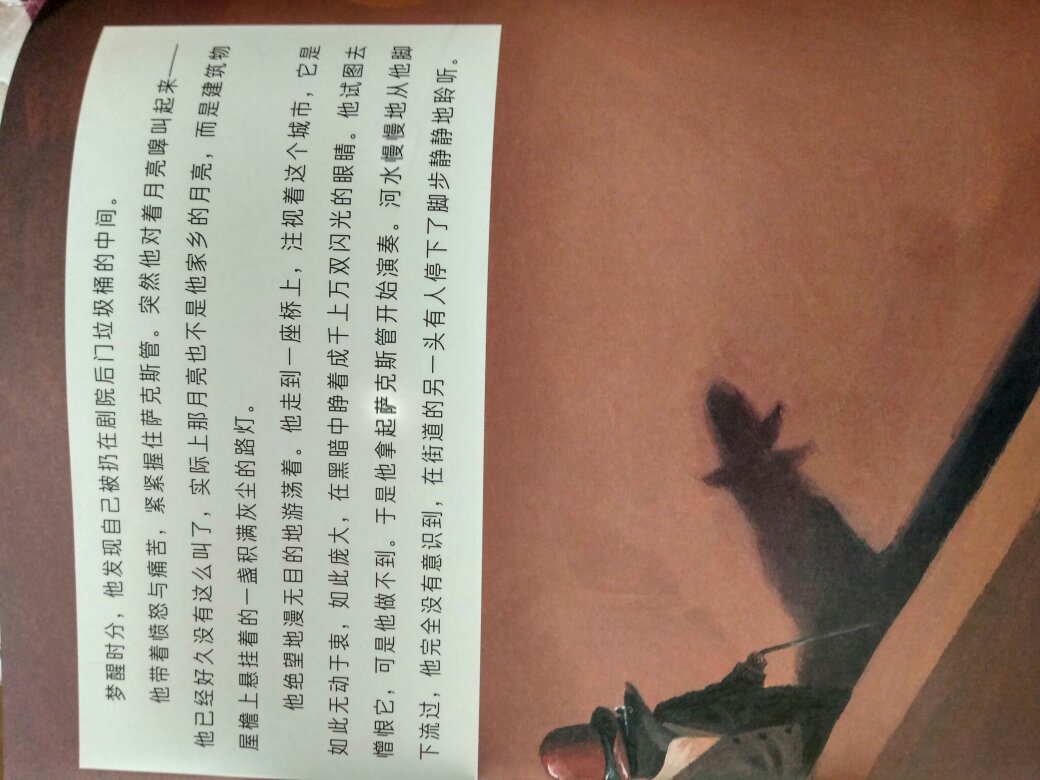 梦醒时分，他发现自己被扔在剧院后门垃圾桶的中间。
他带着愤怒与痛苦，紧紧握住萨克斯管。突然他对着月亮嗥叫起来——
他已经好久没有这么叫了，实际上那月亮也不是他家乡的月亮，而是建筑物
屋檐上悬挂着的一盏积满灰尘的路灯。
他绝望地漫无目的地游荡着。他走到一座桥上，注视着这个城市，它是
如此无动于衷，如此庞大，在黑暗中睁着成千上万双闪光的眼睛。他试图去
憎恨它，可是他做不到。于是他拿起萨克斯管开始演奏。河水慢慢地从他脚
下流过，他完全没有意识到，在街道的另一头有人停下了脚步静静地聆听。